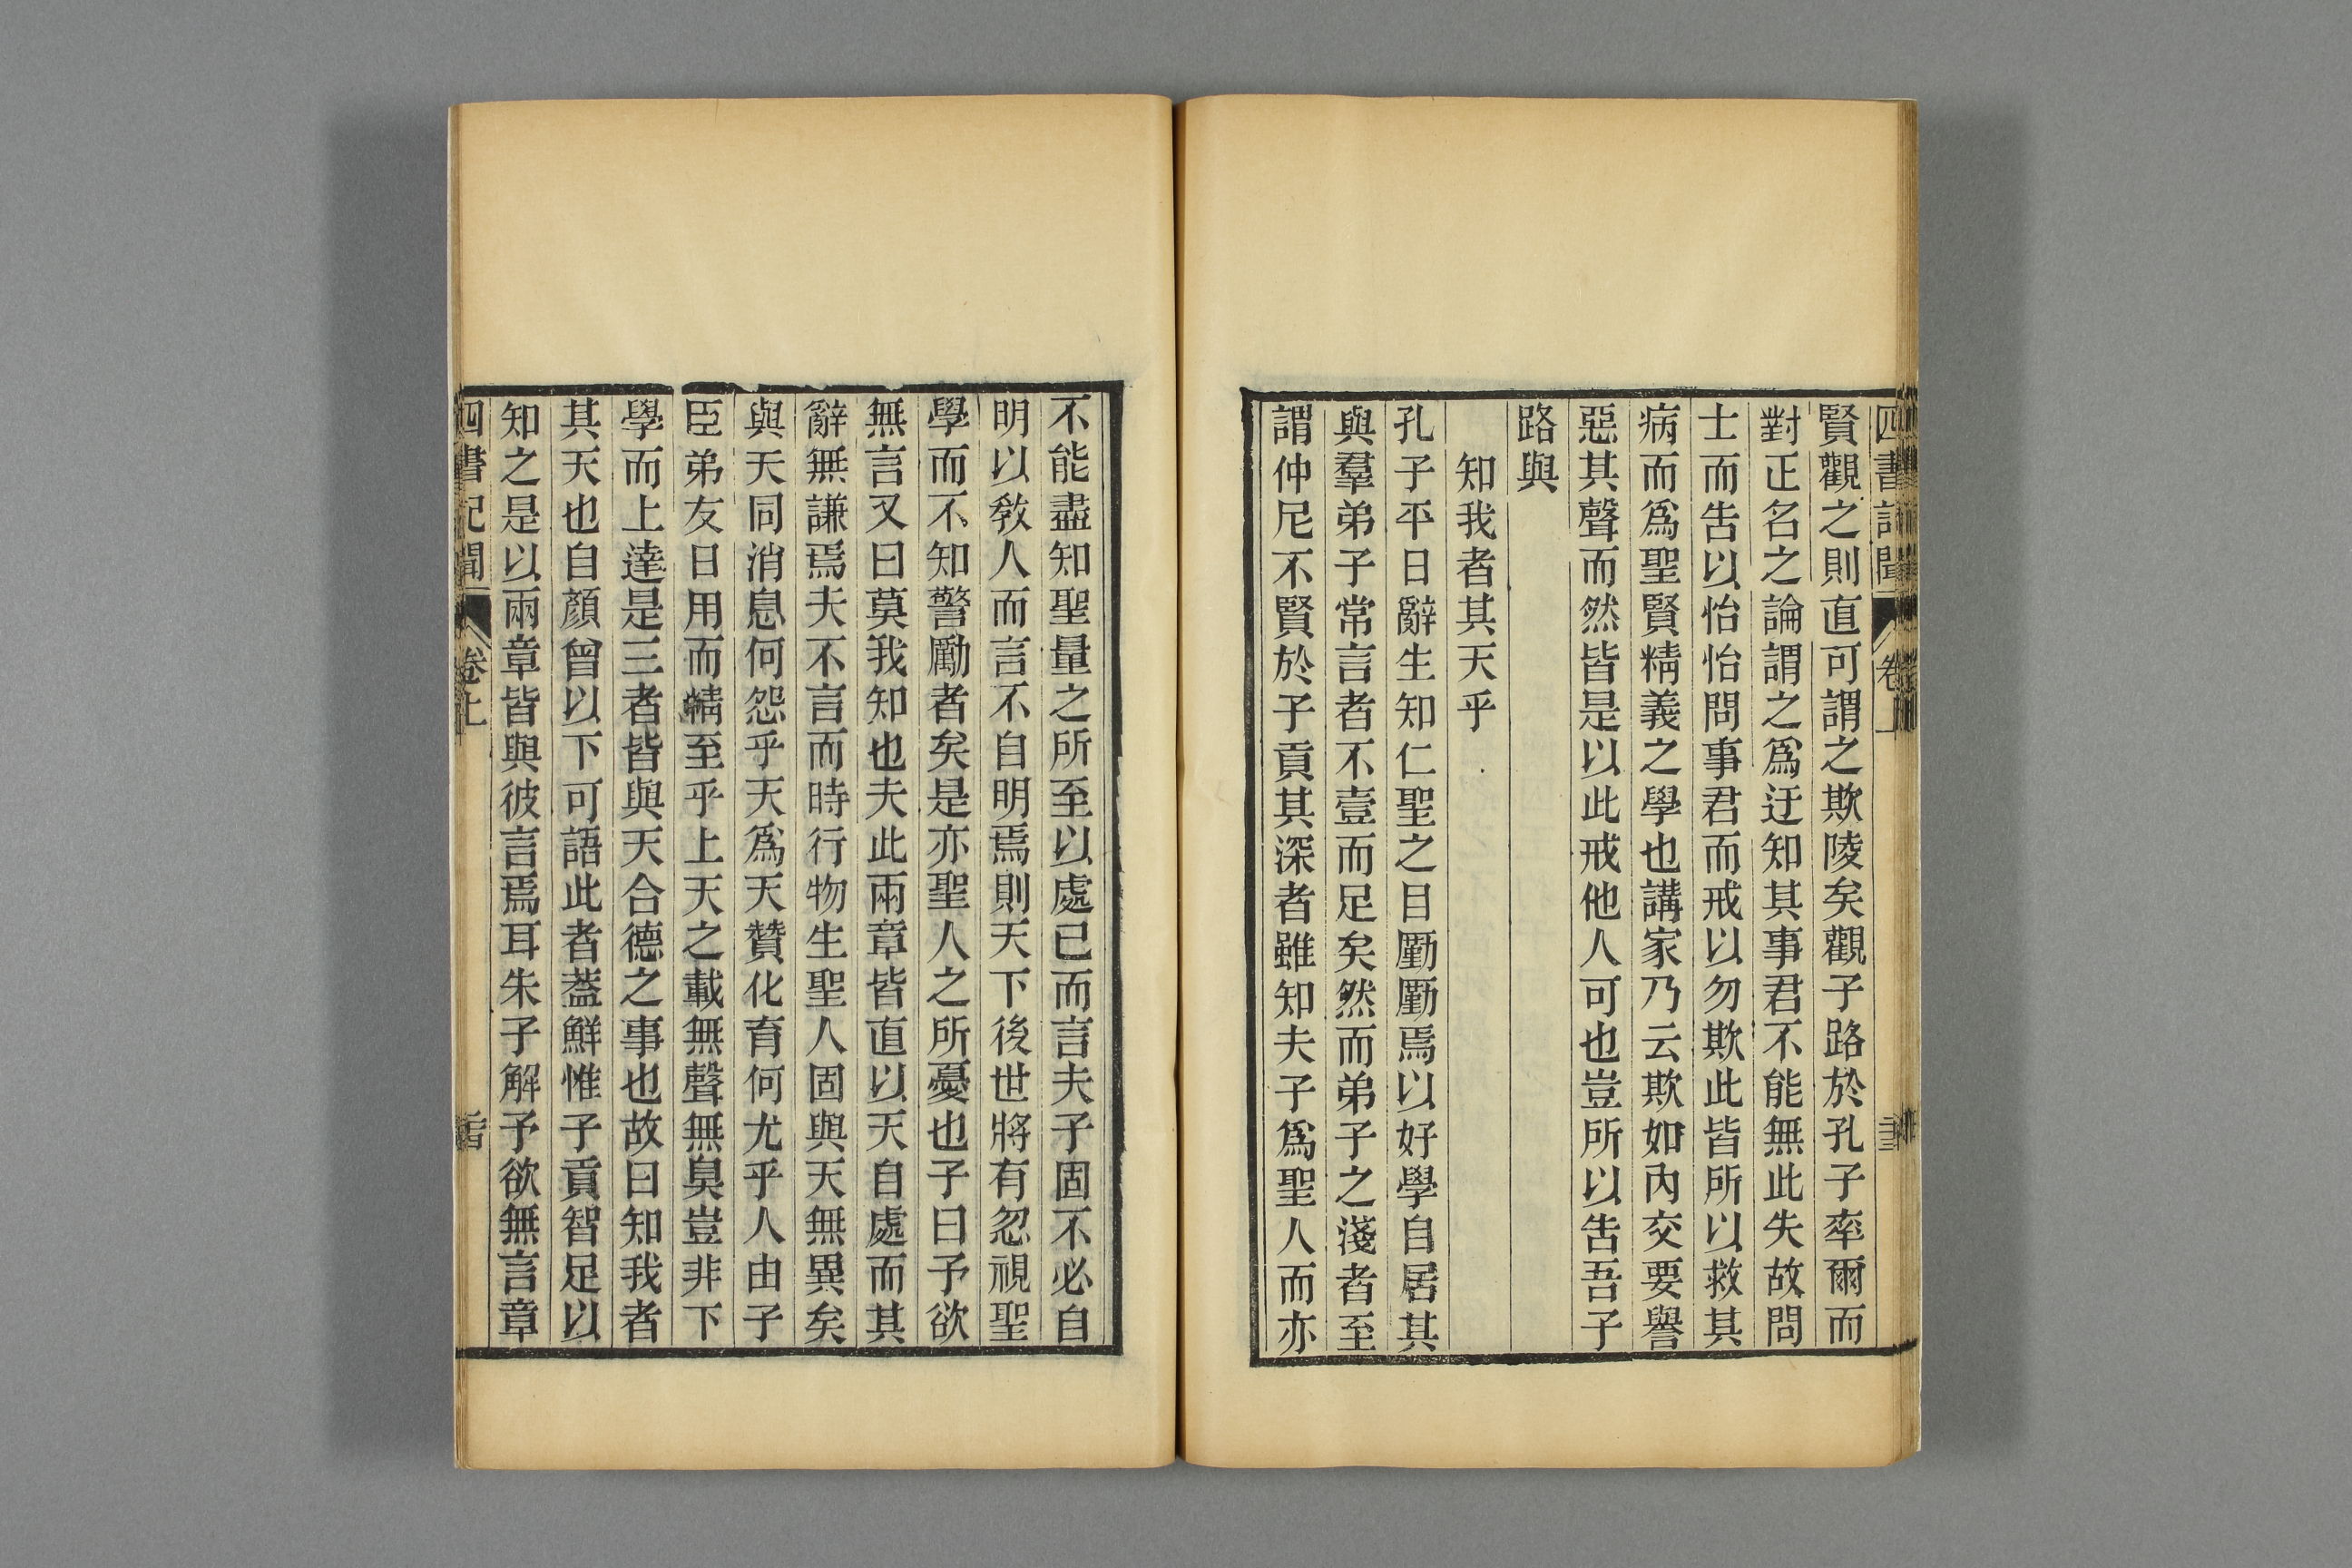 賢觀之則直可謂之欺陵矣觀子路於孔子率爾而
對正名之論謂之爲迂知其事君不能無此失故問
士而告以怡怡問事君而戒以勿欺此皆所以救其
病而爲聖賢精義之學也講家乃云欺如內交要譽
惡其聲而然皆是以此戒他人可也豈所以告吾子
路與
知我者其天乎
孔子平日辭生知仁聖之目勤勤焉以好學自居其
與羣弟子常言者不壹而足矣然而弟子之淺者至
謂仲尼不賢於子貢其深者雖知夫子爲聖人而亦
不能盡知聖量之所至以處己而言夫子固不必自
明以敎人而言不自明焉則天下後世將有忽視聖
學而不知警勵者矣是亦聖人之所憂也子曰予欲
無言又曰莫我知也夫此兩章皆直以天自處而其
辭無謙焉夫不言而時行物生聖人固與天無異矣
與天同消息何怨乎天爲天贊化育何尤乎人由子
臣弟友日用而精至乎上天之載無聲無臭豈非下
學而上達是三者皆與天合德之事也故曰知我者
其天也自顏曾以下可語此者蓋鮮惟子貢智足以
知之是以兩章皆與彼言焉耳朱子解予欲無言章
四書記聞 卷上